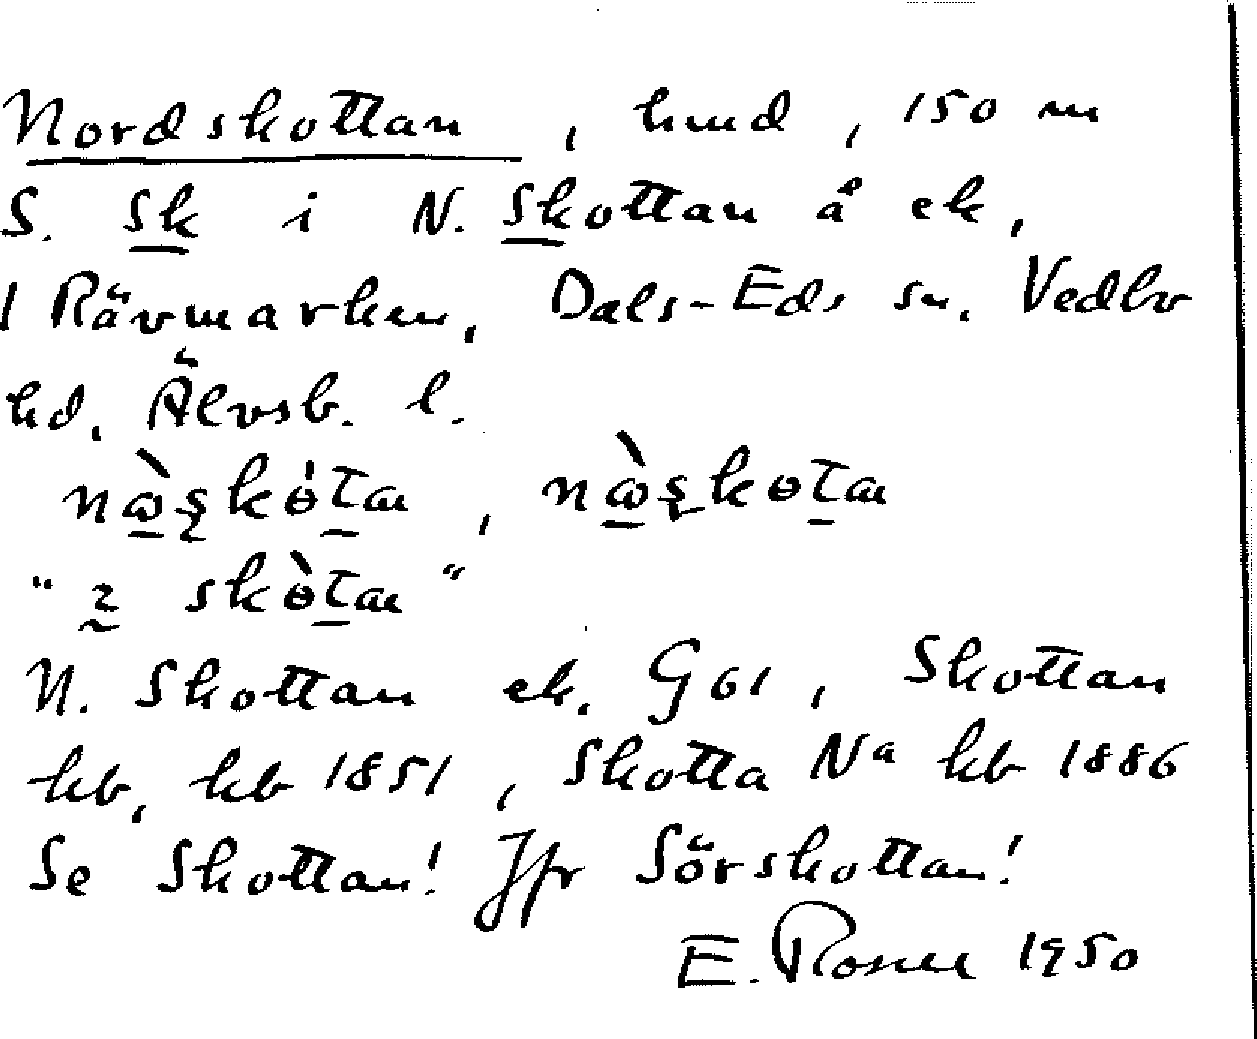 Nordskottan, hmd, 150 m
S. Sk i N. Skottan å ek,
1 Rävmarken, Dals-Eds sn. Vedbo
hd, Älvsb. l.
N. Skottan ek. G 61, Skottan
kb, kb 1851, Skotta Na kb 1886
Se Skottan! Jfr Sörskottan!
E. Rosell 1950